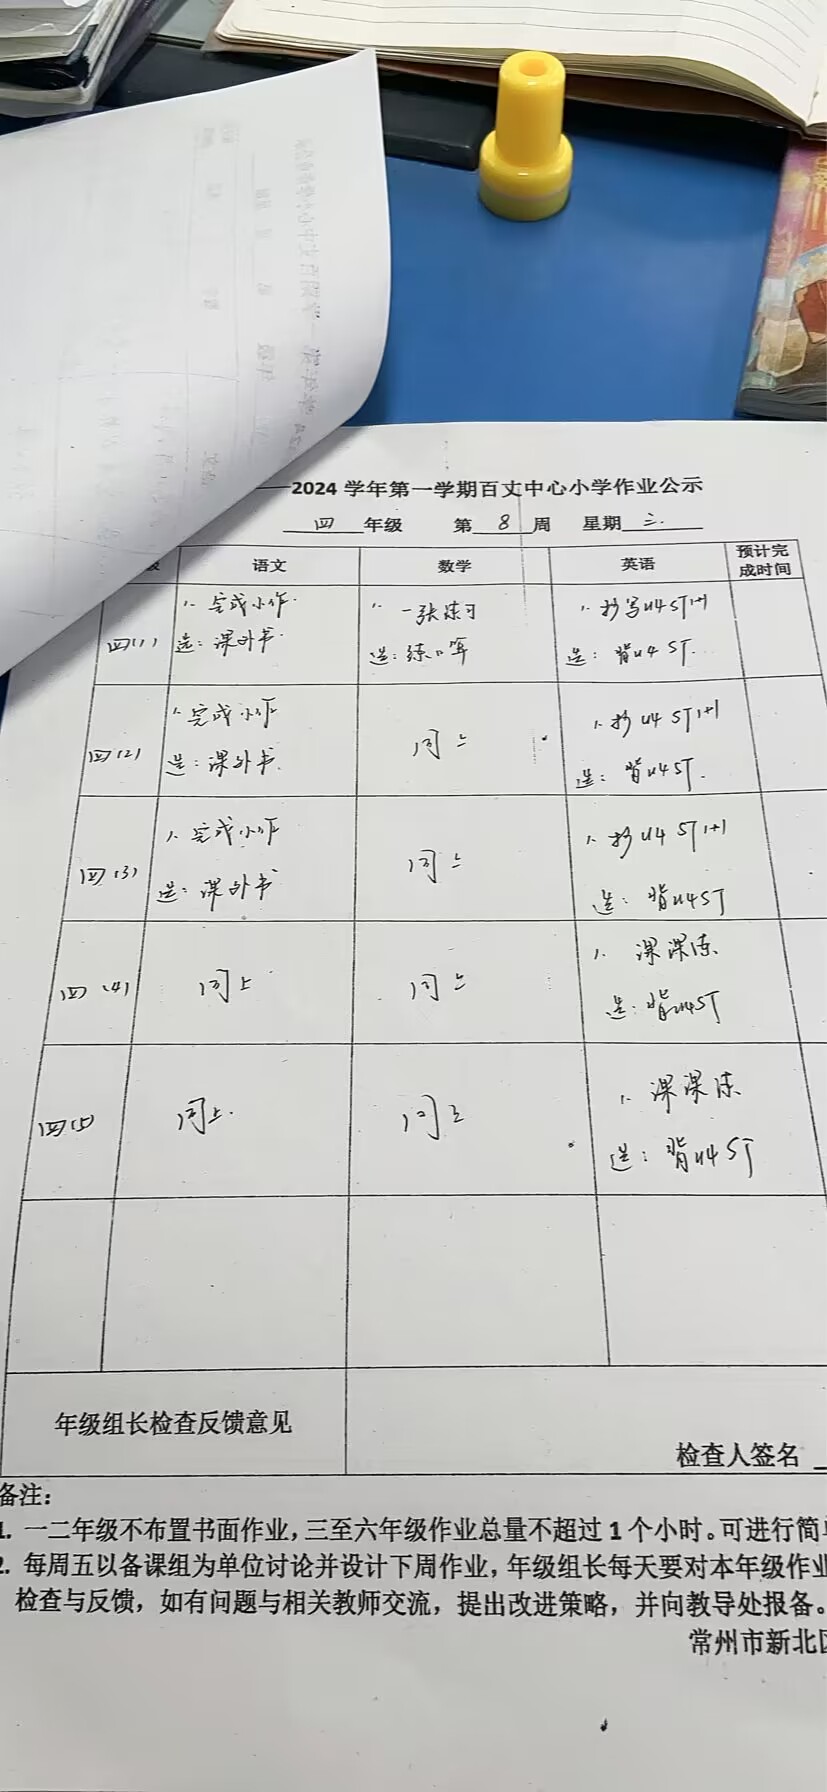 2024 学年第一学期百丈中心小学作业公示
四 年级 第 8 周 星期 三
级 语文 数学 英语 预计完成时间
四(1)
1. 完成小作
选: 课外书
1. 一张练习
选: 练口算
1. 抄写U4 ST 1+1
选: 背U4 ST.
四(2)
1. 完成小作
选: 课外书.
同上
1. 抄 U4 ST 1+1
选: 背U4ST.
四(3)
1. 完成小作
选: 课外书
同上
1. 抄U4 ST 1+1
选: 背U4ST
四(4)
同上
同上
1. 课课练
选: 背U4ST
四(5)
同上.
同上
1. 课课练
选: 背U4 ST
年级组长检查反馈意见
检查人签名
备注:
1. 一二年级不布置书面作业,三至六年级作业总量不超过 1 个小时。可进行简
2. 每周五以备课组为单位讨论并设计下周作业,年级组长每天要对本年级作业
检查与反馈,如有问题与相关教师交流,提出改进策略,并向教导处报备。
常州市新北区